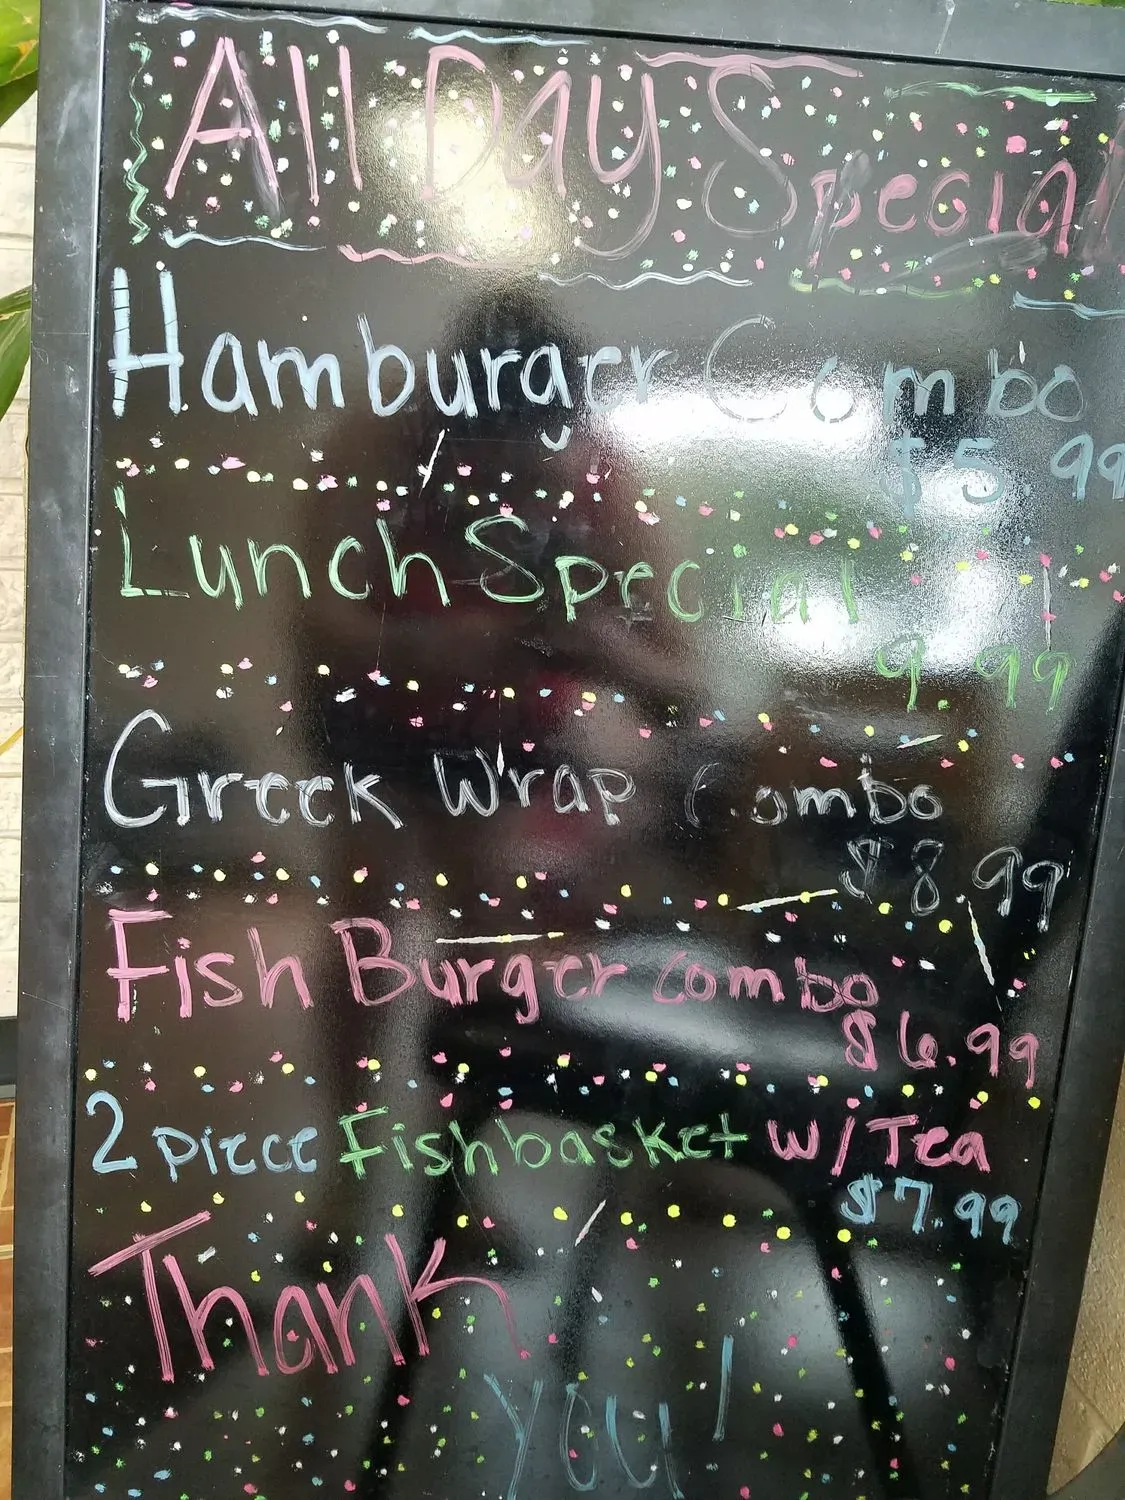 All Day Special
Hamburger Combo
$5.99
Lunch Special
9.99
Greek Wrap Combo
$8.99
Fish Burger combo
$6.99
2 piece Fishbasket w/Tea
$7.99
Thank
you!